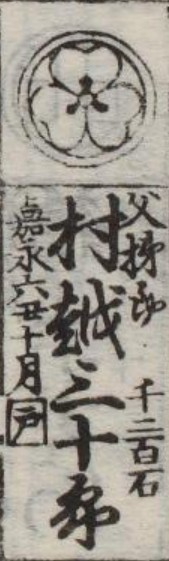 父梯助
千二百石
村越三十郎
嘉永六丑十月
戸